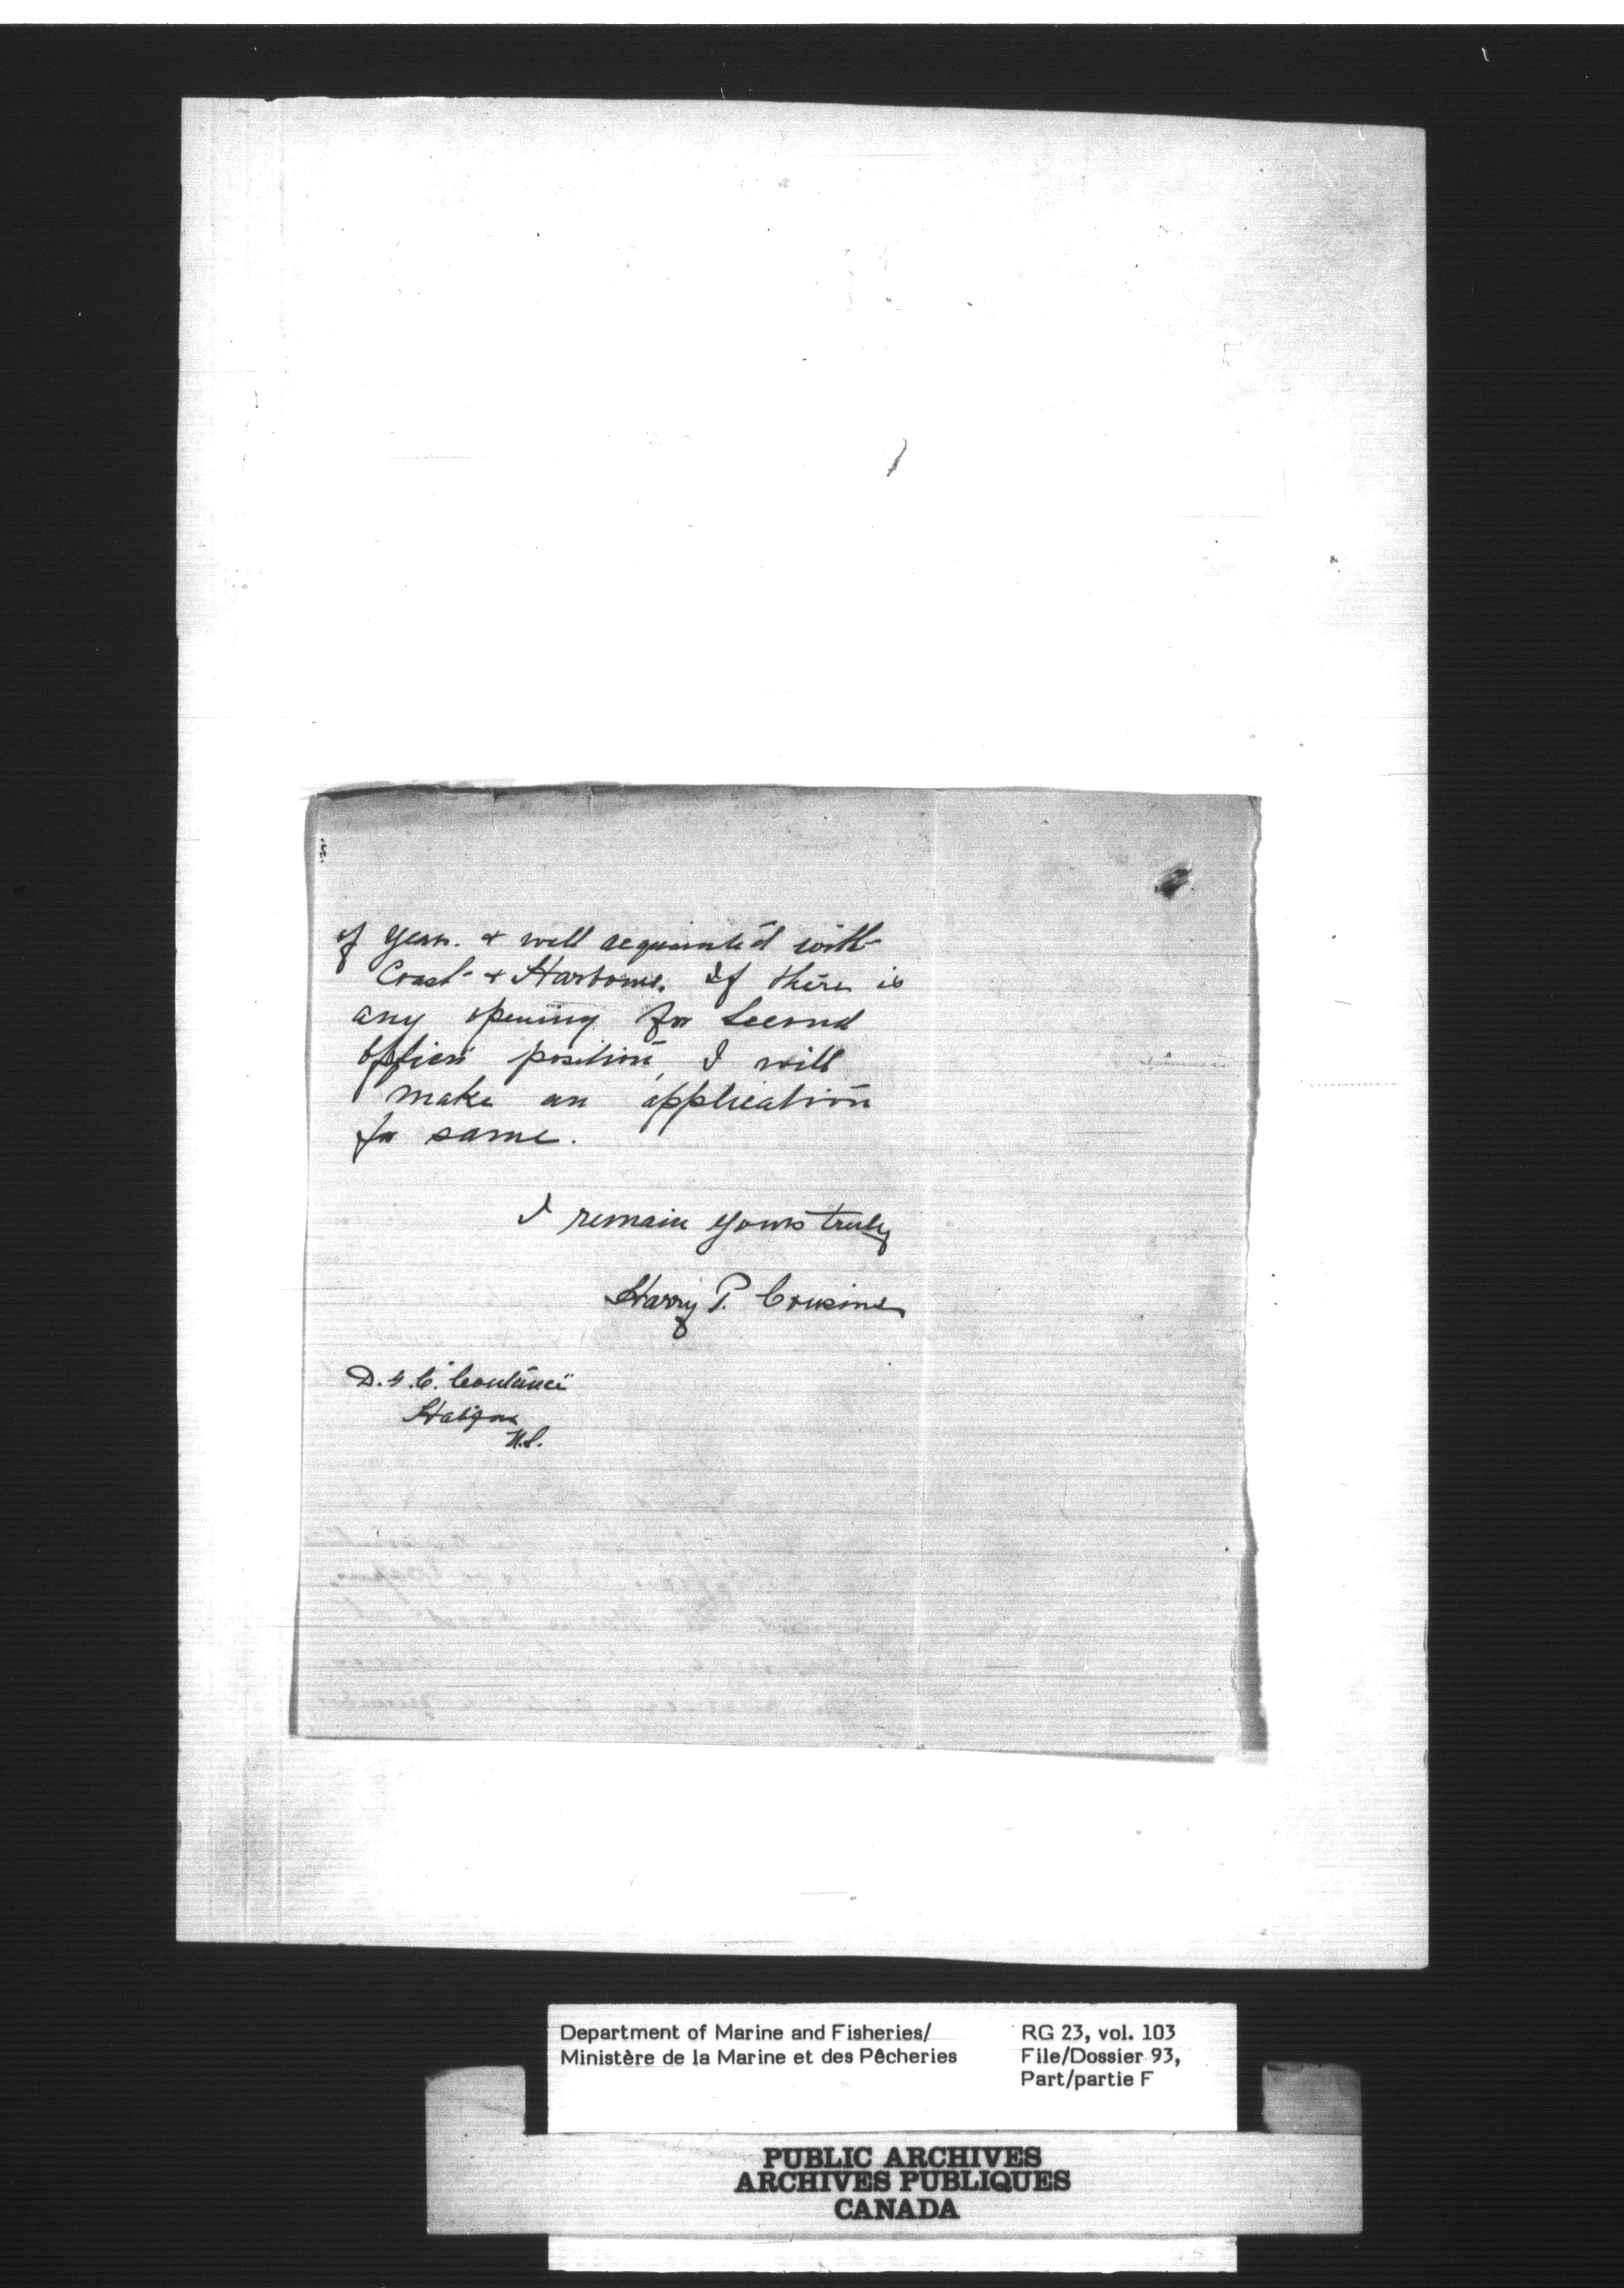 of years. & well acquainted with
Coast & Harbours. If there is
any opening for Second
Officers position, I will
make an application
for same.
I remain yours truly
Harry P. Cousins
D.G.C. Constance
Halifax
N.S.
Department of Marine and Fisheries/
Ministère de la Marine et des Pêcheries
RG 23, vol. 103
File/Dossier 93,
Part/partie F
PUBLIC ARCHIVES
ARCHIVES PUBLIQUES
CANADA